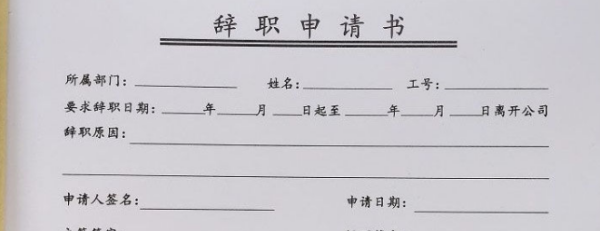 辞职申请书
所属部门：____________ 姓名：____________ 工号：____________
要求辞职日期：_____年_____月_____日起至_____年_____月_____日离开公司
辞职原因：
申请人签名：____________ 申请日期：____________